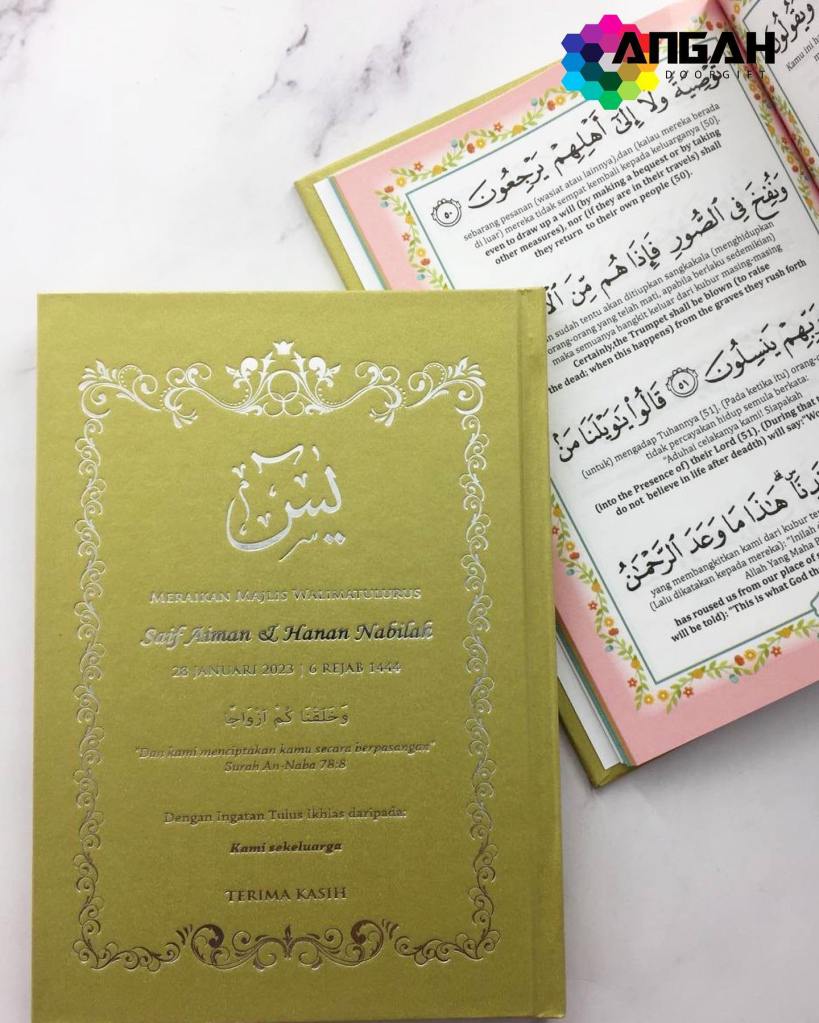 ANGAH
DOORGIFT
يس
MERAIKAN MAJLIS WALIMATULURUS
Saif Aiman & Hanan Nabilah
28 JANUARI 2023 | 6 REJAB 1444
وَخَلَقْنَا كُمْ اَزْوَاجًا
"Dan kami menciptakan kamu secara berpasangan"
Surah An-Naba 78:8
Dengan Ingatan Tulus Ikhlas daripada:
Kami sekeluarga
TERIMA KASIH
وَيَقُولُونَ
Kamu ini
تَوْصِيَةً وَلَا إِلَىٰٓ أَهْلِهِمْ يَرْجِعُونَ ٥٠
sebarang pesanan (wasiat atau lainnya),dan (kalau mereka berada
di luar) mereka tidak sempat kembali kepada keluarganya [50].
even to draw up a will (by making a bequest or by taking
other measures), nor (if they are in their travels) shall
they return to their own people (50).
وَنُفِخَ فِي ٱلصُّورِ فَإِذَا هُم مِّنَ
sudah tentu akan ditiupkan sangkakala (menghidupkan
orang-orang yang telah mati, apabila berlaku sedemikian)
maka semuanya bangkit keluar dari kubur masing-masing
Certainly,the Trumpet shall be blown (to raise
the dead; when this happens) from the graves they rush forth
رَبِّهِمْ يَنسِلُونَ ٥١ قَالُوا۟ يَٰوَيْلَنَا مَنۢ
(untuk) mengadap Tuhannya [51]. (Pada ketika itu) orang-
tidak percayakan hidup semula berkata:
"Aduhai celakanya kami! Siapakah
(into the Presence of) their Lord (51). (During that
do not believe in life after deadth) will say: "Wo
هَٰذَا مَا وَعَدَ ٱلرَّحْمَٰنُ
yang membangkitkan kami dari kubur
(Lalu dikatakan kepada mereka): "Inilah
Allah Yang Maha
has roused us from our place of
will be told): "This is what God